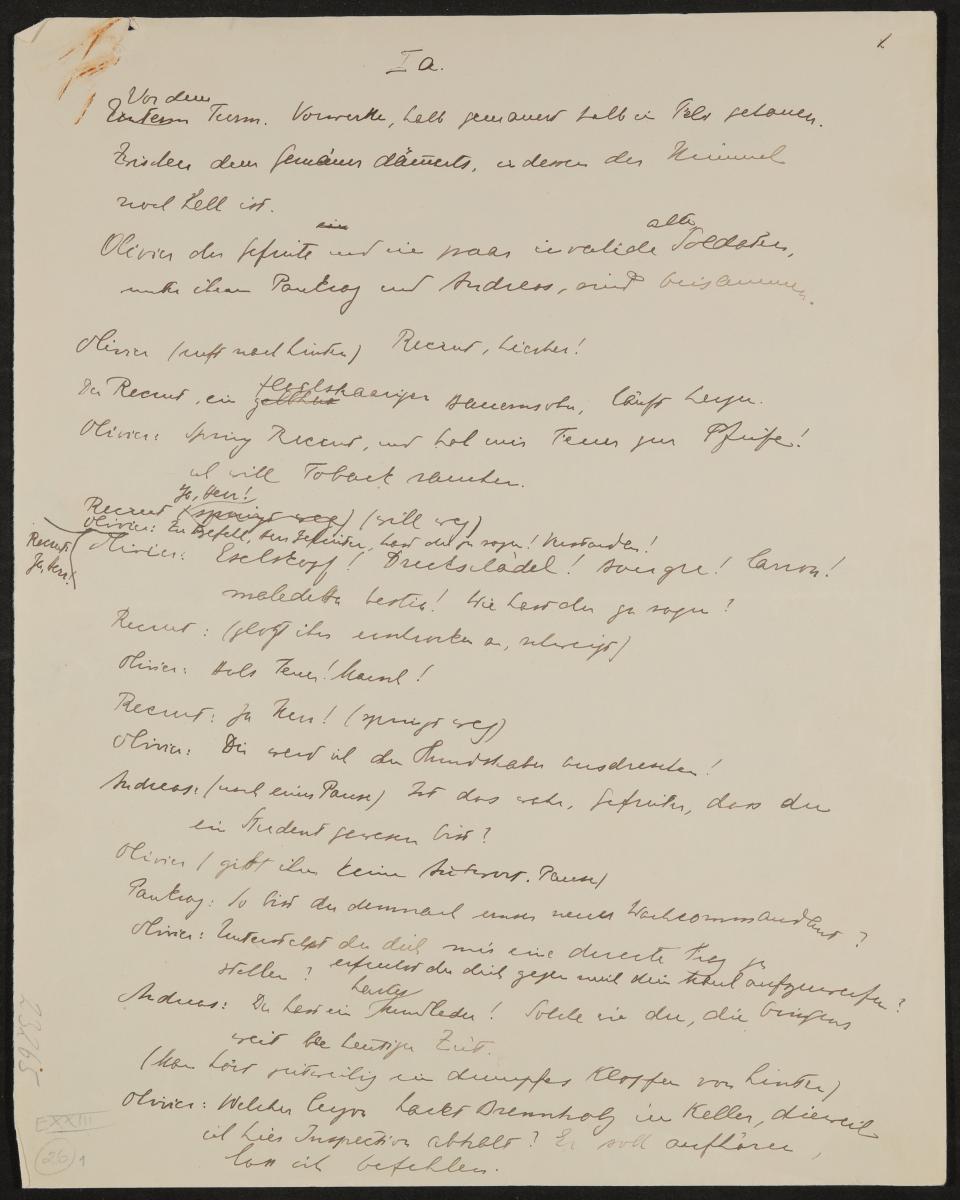 1.
I a.
Vor dem
Unterm Turm. Vorwerke, halb gemauert halb in Fels gehauen.
Zwischen dem Gemäuer dämmerts, indessen der Himmel
noch hell ist.
ein alte
Olivier der Gefreite und ein paar invalide Soldaten,
unter ihnen Pankraz und Andreas, sind beisammen.
Olivier (ruft nach hinten) Recrut, hierher!
Der Recrut, ein flachshaariger Bauernsohn, läuft herzu.
Olivier: Spring Recrut, und hol mir Feuer zur Pfeife!
ich will Toback rauchen.
Ja, Herr!
Recrut (springt weg) (will weg)
Olivier: Zu Befehl, Herr Gefreiter, hast du zu sagen! Verstanden!
Recrut: Ja, Herr!
Olivier: Eselskopf! Dreckschädel! Bougre! Carron!
maledetta bestia! Wie hast du zu sagen?
Recrut: (glotzt ihn erschrocken an, schweigt)
Olivier: Hols Feuer! Marsch!
Recrut: Ja Herr! (springt weg)
Olivier: Dir werd ich den Hundshaber ausdreschen!
Andreas: (nach einer Pause) Ist das wahr, Gefreiter, dass du
ein Student gewesen bist?
Olivier (gibt ihm keine Antwort. Pause)
Pankraz: So bist du demnach unser neuer Wachcommandant?
Olivier: Unterstehst du dich mir eine directe Frag zu
stellen? erfrechst du dich gegen mich dein Maul aufzuwerfen?
hartes
Andreas: Du hast ein Mundleder! Solche wie du, die bringens
weit bei heutiger Zeit.
(Man hört zeitweilig ein dumpfes Klopfen von hinten)
Olivier: Welcher hackt Brennholz im Keller, dieweil
ich hier Inspection abhalt? Er soll aufhören,
lass ich befehlen.
23265
EXXIII
(26) 1